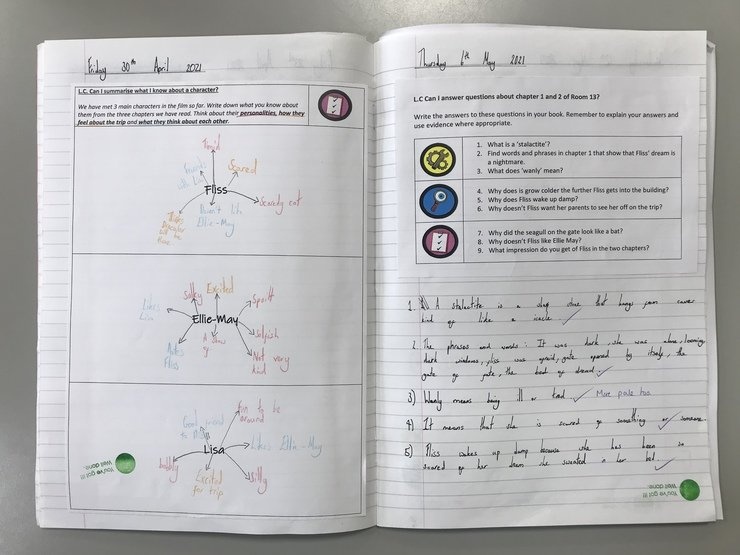 Friday 30th April 2021
L.C. Can I summarise what I know about a character?
We have met 3 main characters in the film so far. Write down what you know about
them from the three chapters we have read. Think about their personalities, how they
feel about the trip and what they think about each other.
Timid
Friends with Lisa
Scared
Fliss
Scaredy cat
Doesn't like
Ellie-May
Thinks
Dracular
will be
there
Silley
Excited
Spoilt
Likes
Lisa
Ellie-May
Selfish
Hates
Fliss
A show
of
Not very
kind
Fun to be
around
Good friend
to
Lisa
Likes Ellie-May
bubbly
Excited
for trip
Silly
You've got it!
Well done.
Thursday 6th May 2021
L.C Can I answer questions about chapter 1 and 2 of Room 13?
Write the answers to these questions in your book. Remember to explain your answers and
use evidence where appropriate.
1. What is a 'stalactite'?
2. Find words and phrases in chapter 1 that show that Fliss' dream is
a nightmare.
3. What does 'wanly' mean?
4. Why does is grow colder the further Fliss gets into the building?
5. Why does Fliss wake up damp?
6. Why doesn't Fliss want her parents to see her off on the trip?
7. Why did the seagull on the gate look like a bat?
8. Why doesn't Fliss like Ellie May?
9. What impression do you get of Fliss in the two chapters?
1. A stalactite is a stone that hangs from
kind of like a icacle.
2. The phrases and words: It was dark, she was alone, looming,
dark windows, fliss was afraid, gate opened by itself, the
gate of fate, the
3) Wanly means being ill or tired. More pale too.
4) It means that she is scared of something or someone.
5) Fliss wakes up damp because she has been so
scared of her dream she sweated in her bed.
You've got it!
Well done.